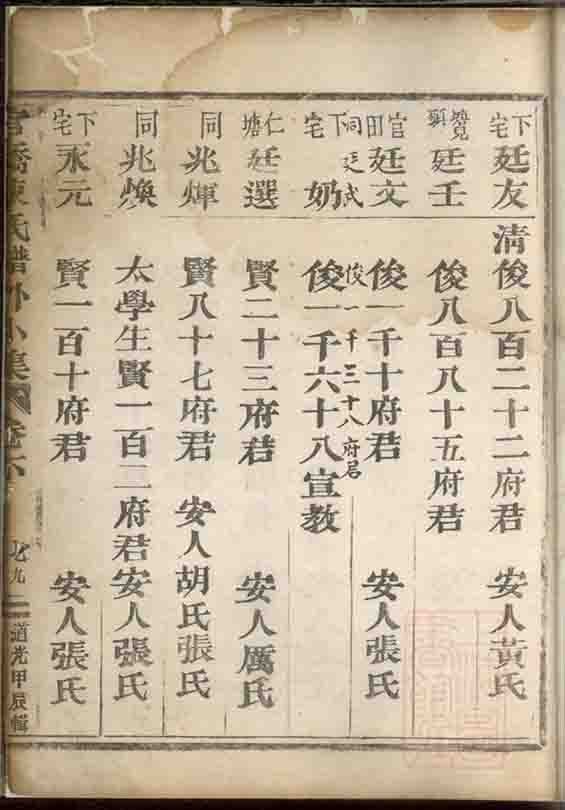 下宅 廷友 清俊八百二十二府君 安人黃氏
廷壬 俊八百八十五府君
官田 廷文 俊一千十府君 安人張氏
同 廷武 俊一千三十八府君
下宅 奶 俊一千六十八宣教
仁塘 廷選 賢二十三府君 安人厲氏
同 兆煇 賢八十七府君 安人胡氏張氏
同 兆煥 太學生賢一百二府君安人張氏
下宅 永元 賢一百十府君 安人張氏
氏譜外小集 卷 九 道光甲辰輯